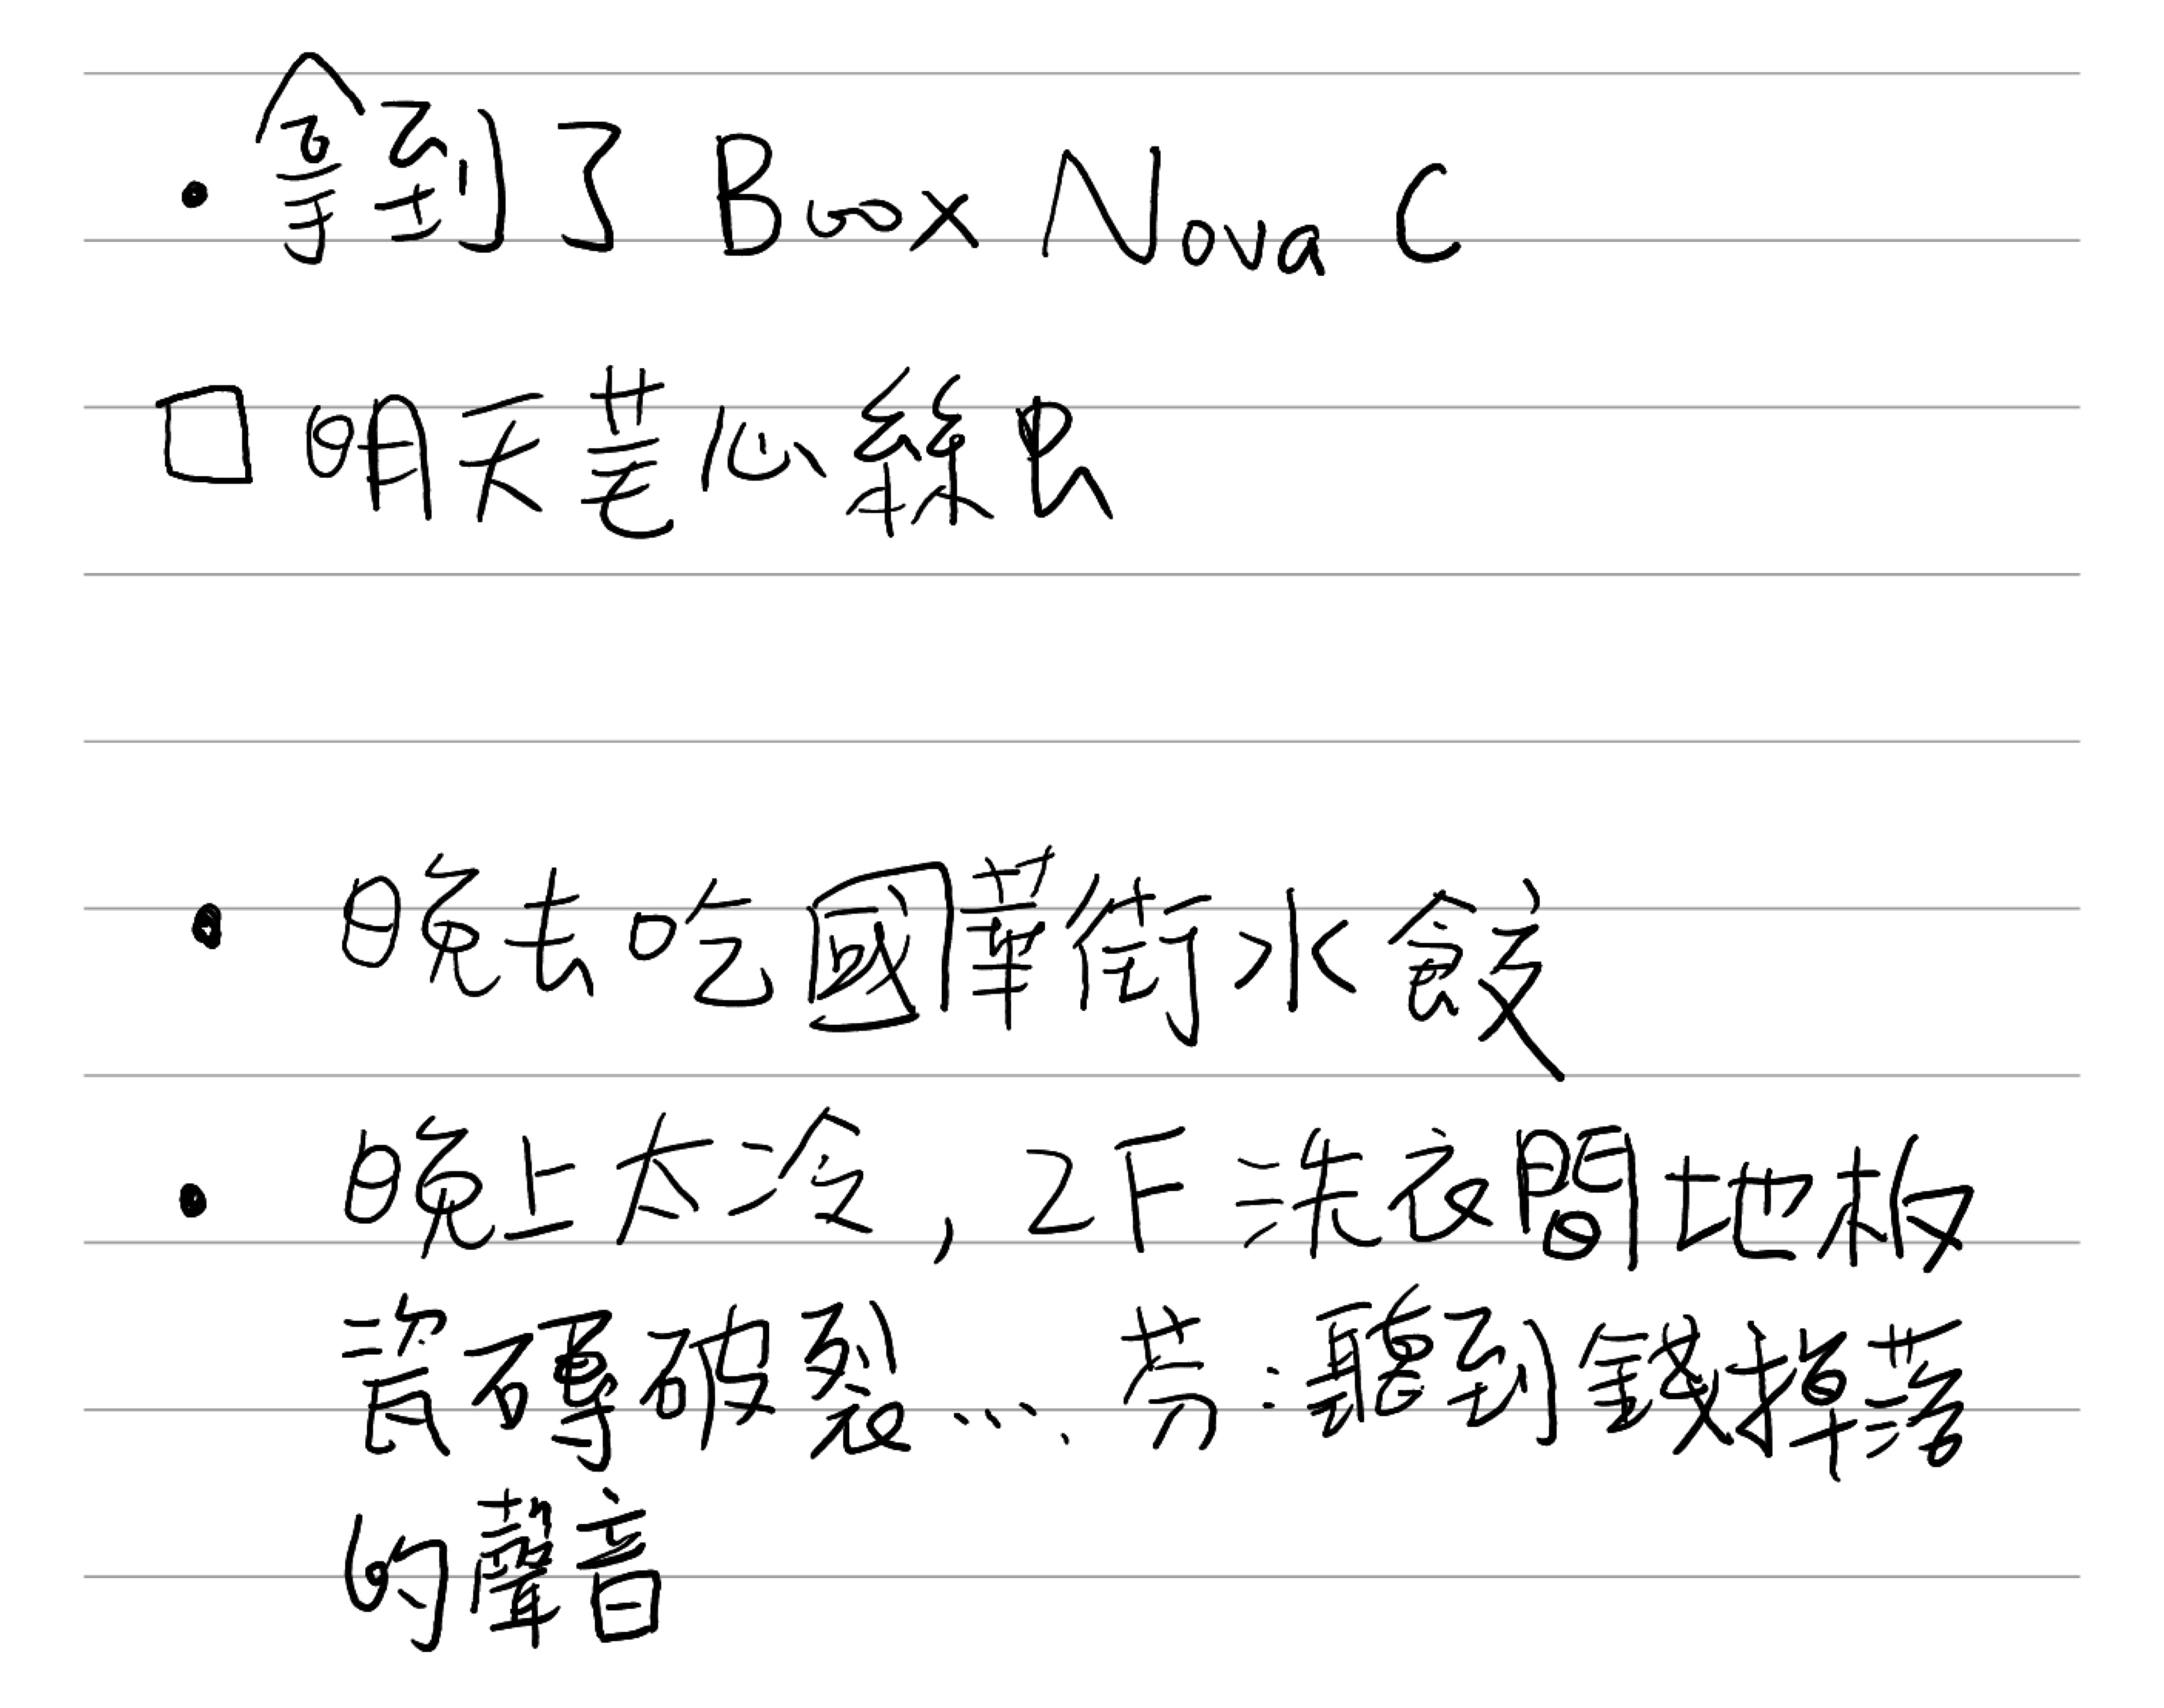 • 拿到了 Boox Nova C
□ 明天荖心絲虫
• 晚去吃國華街水餃
• 晚上太冷, 2F 洗衣間地板
瓷磚破裂... 芬:聽到錢掉落
的聲音